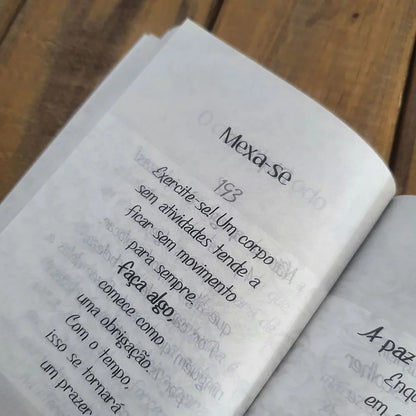 Mexa-se
193
Exercite-se! Um corpo
sem atividades tende a
ficar sem movimento
para sempre,
faça algo,
comece como
uma obrigação.
Com o tempo,
isso se tornará
um prazer
A paz
Enqu
em